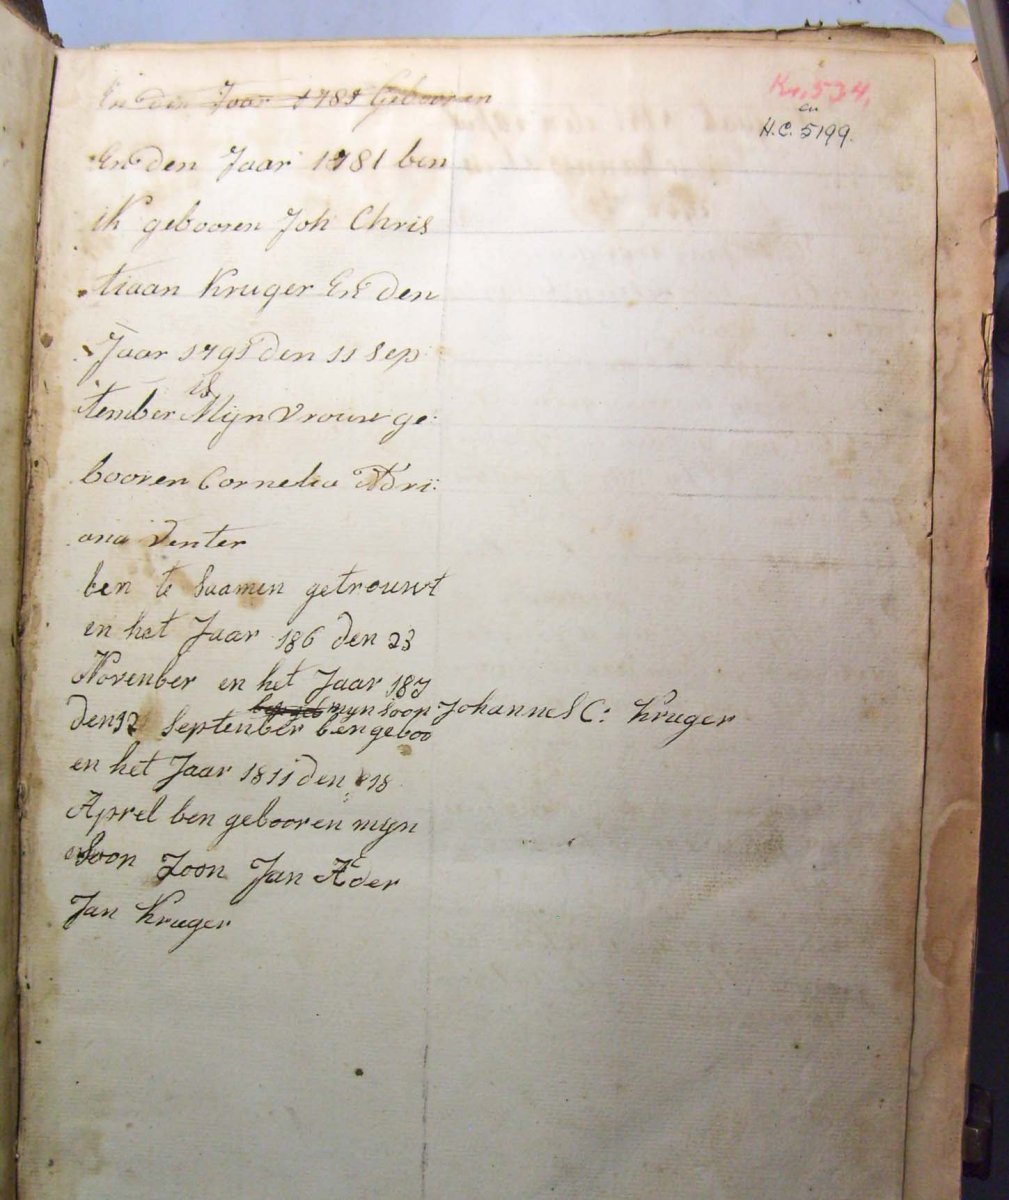 En den Jaar 1781 Gebooren
Kr. 534,
en
H.C. 5199.
En den Jaar 1781 ben
ik gebooren Joh Chris
tiaan Kruger En den
Jaar 1791 den 11 Sep
is
tember Mijn Vrouw ge
booren Cornelia Adri
ana Venter
ben te Saamen getrouwt
en het Jaar 186 den 23
November en het Jaar 187
mynsoon Johannes C: Kruger
den 12 September ben geboo
en het Jaar 1811 den 18
Aprel ben gebooren myn
Soon Zoon Jan Ader
Jan Kruger